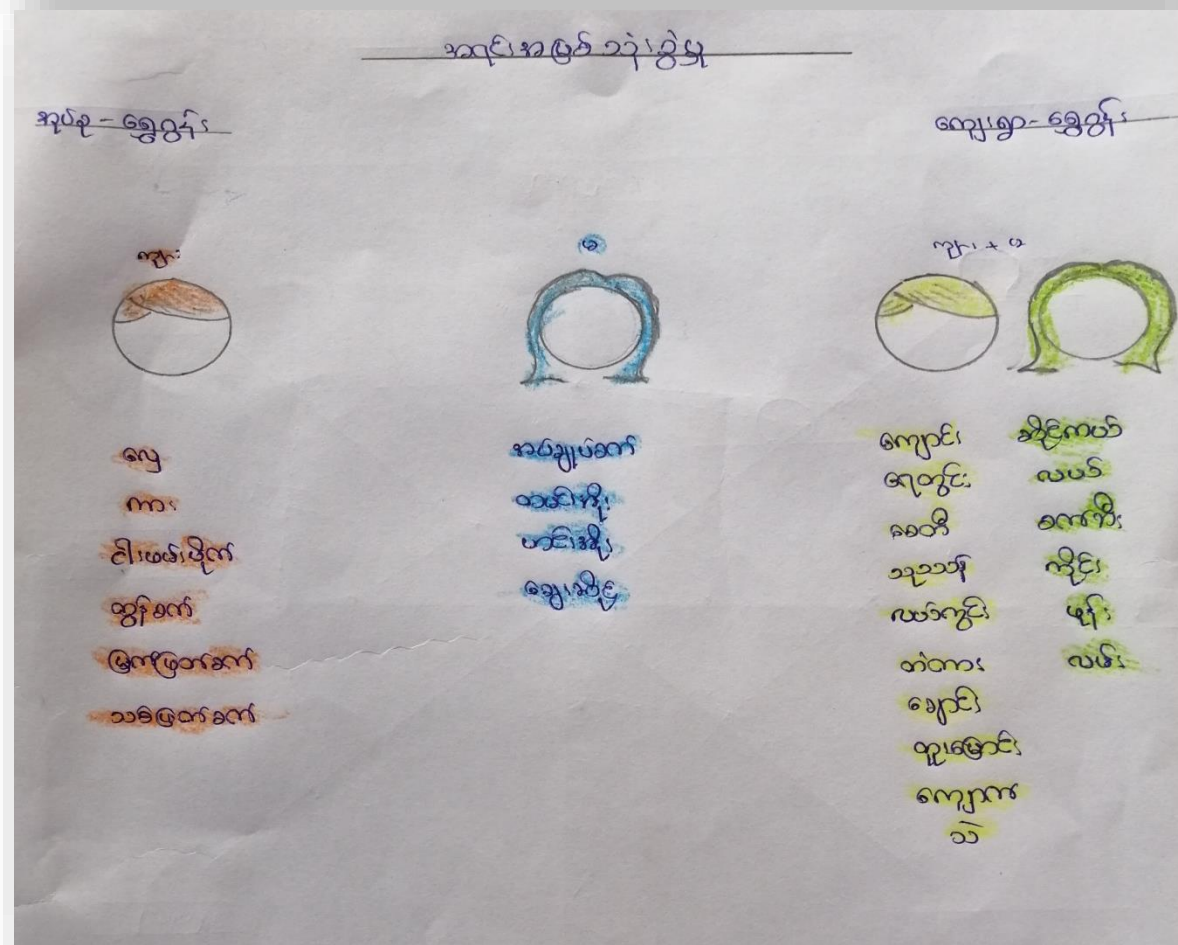 အရင်းအမြစ် သုံးစွဲမှု
အုပ်စု - ရွှေဂွန်း
ကျေးရွာ - ရွှေဂွန်း
ကျား
မ
ကျား + မ
လှေ
ကား
ငါးဖမ်းပိုက်
ထွန်စက်
မြက်ဖြတ်စက်
သစ်ဖြတ်စက်
အပ်ချုပ်စက်
ထမင်းအိုး
ဟင်းအိုး
ဈေးဆိုင်
ကျောင်း
ရေတွင်း
စေတီ
သုသာန်
ယာကွင်း
တံတား
ချောင်း
တူးမြောင်း
ကျောက်
သဲ
ဆိုင်ကယ်
လယ်
စက်ဘီး
ကိုင်း
ဖုန်း
လမ်း